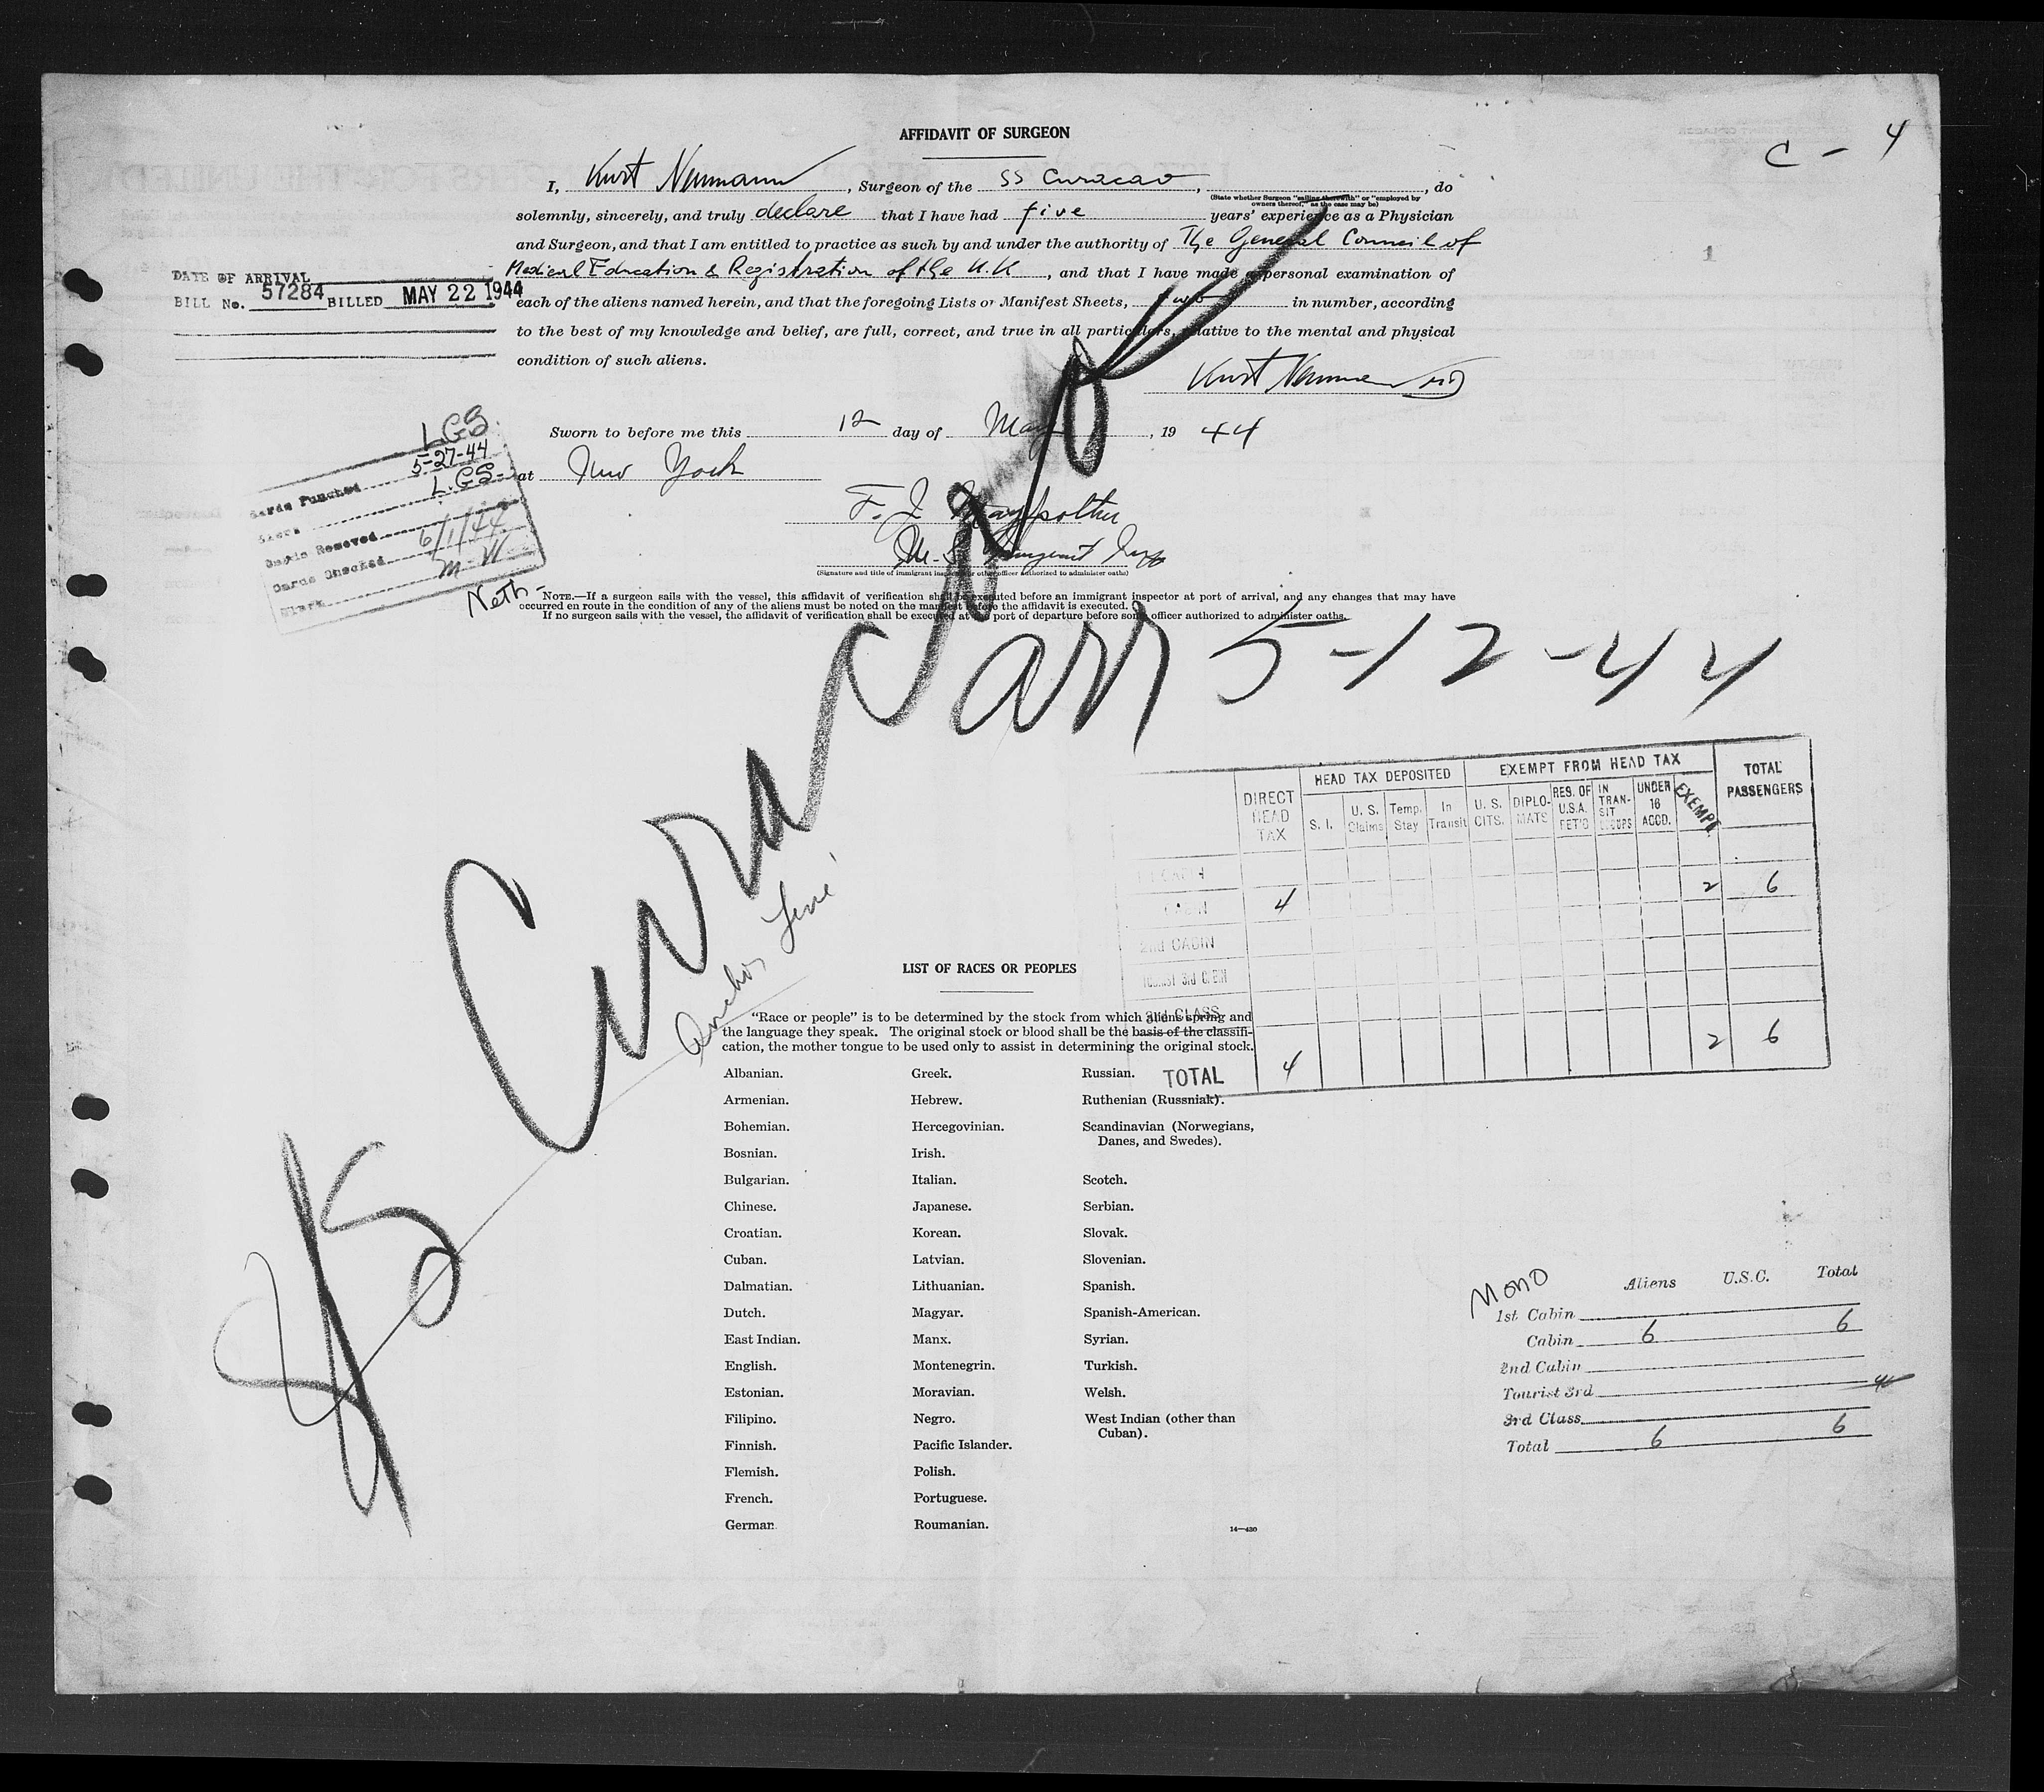 AFFIDAVIT OF SURGEON
C - 4
I, Kurt Neumann, Surgeon of the SS Curacao, , do
(State whether Surgeon "sailing therewith" or "employed by
owners thereof," as the case may be)
solemnly, sincerely, and truly declare that I have had five years' experience as a Physician
and Surgeon, and that I am entitled to practice as such by and under the authority of The General Council of
Medical Education & Registration of the U.K, and that I have made a personal examination of
each of the aliens named herein, and that the foregoing Lists or Manifest Sheets, two in number, according
to the best of my knowledge and belief, are full, correct, and true in all particulars, relative to the mental and physical
condition of such aliens.
DATE OF ARRIVAL
BILL No. 57284 BILLED MAY 22 1944
Kurt Neumann MD
Sworn to before me this 12 day of May, 19 44
at New York
F. J.
(Signature and title of immigrant inspector or other officer authorized to administer oaths)
L.G.S.
Cards Punched 5-27-44
Clerk L.G.S.
Removed
Cards Checked 6/1/44
Clerk M-W
Neth-
NOTE.—If a surgeon sails with the vessel, this affidavit of verification shall be executed before an immigrant inspector at port of arrival, and any changes that may have
occurred en route in the condition of any of the aliens must be noted on the manifest before the affidavit is executed.
If no surgeon sails with the vessel, the affidavit of verification shall be executed at the port of departure before some officer authorized to administer oaths.
S/S Curacao
arr 5-12-44
Anchor Line
DIRECT HEAD TAX
HEAD TAX DEPOSITED
S. I.
U. S. Claims
Temp. Stay
In Transit
EXEMPT FROM HEAD TAX
U. S. CITS.
DIPLO-MATS
RES. OF U.S.A. RET'D
IN TRAN-SIT GROUPS
UNDER 16 ACCD.
EXEMPT
TOTAL PASSENGERS
1st CABIN
CABIN 4 2 6
2nd CABIN
TOURIST 3rd CABIN
3rd CLASS
TOTAL 4 2 6
LIST OF RACES OR PEOPLES
"Race or people" is to be determined by the stock from which aliens spring and
the language they speak. The original stock or blood shall be the basis of the classifi-
cation, the mother tongue to be used only to assist in determining the original stock.
Albanian.
Armenian.
Bohemian.
Bosnian.
Bulgarian.
Chinese.
Croatian.
Cuban.
Dalmatian.
Dutch.
East Indian.
English.
Estonian.
Filipino.
Finnish.
Flemish.
French.
German.
Greek.
Hebrew.
Hercegovinian.
Irish.
Italian.
Japanese.
Korean.
Latvian.
Lithuanian.
Magyar.
Manx.
Montenegrin.
Moravian.
Negro.
Pacific Islander.
Polish.
Portuguese.
Roumanian.
Russian.
Ruthenian (Russniak).
Scandinavian (Norwegians,
Danes, and Swedes).
Scotch.
Serbian.
Slovak.
Slovenian.
Spanish.
Spanish-American.
Syrian.
Turkish.
Welsh.
West Indian (other than
Cuban).
14—430
Mono
Aliens U.S.C. Total
1st Cabin
Cabin 6 6
2nd Cabin
Tourist 3rd
3rd Class
Total 6 6